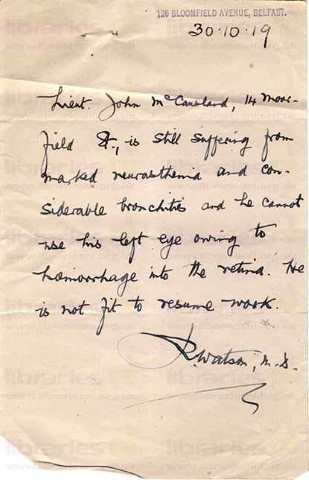 126 BLOOMFIELD AVENUE, BELFAST.
30.10.19
Lieut. John McCausland, 14 Moor-
field St., is still suffering from
marked neurasthenia and con-
siderable bronchitis and he cannot
use his left eye owing to
hæmorrhage into the retina. He
is not fit to resume work.
R. Watson, M.D.
libraries